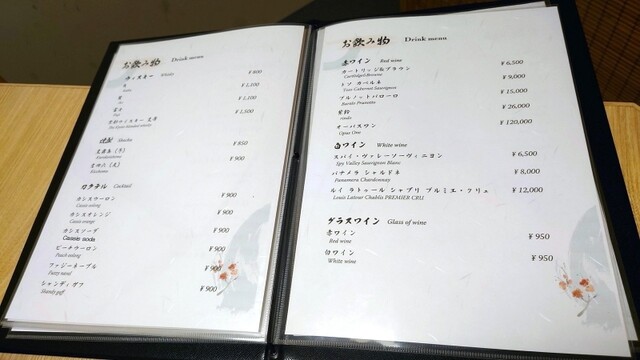 お飲み物 Drink menu
ウィスキー
¥800
¥1,100
¥1,100
¥1,500
焼酎 Shochu
¥850
¥900
カクテル Cocktail
カシスウーロン ¥900
Cassis oolong
カシスオレンジ ¥900
Cassis orange
カシスソーダ ¥900
Cassis soda
ピーチウーロン ¥900
Peach oolong
ファジーネーブル ¥900
Fuzzy navel
シャンディガフ ¥900
Shandy gaff
お飲み物 Drink menu
赤ワイン Red wine
カートリッジ&ブラウン ¥6,500
Cartlidge&Browne
トソ カベルネ ¥9,000
Toso Cabernet Sauvignon
プルノットバローロ ¥15,000
Barolo Prunotto
¥26,000
オーパスワン ¥120,000
Opus One
白ワイン White wine
スパイ・ヴァレーソーヴィニヨン ¥6,500
Spy Valley Sauvignon Blanc
パナメラ シャルドネ ¥8,000
Panamera Chardonnay
ルイ ラトゥール シャブリ プルミエ・クリュ ¥12,000
Louis Latour Chablis PREMIER CRU
グラスワイン Glass of wine
赤ワイン ¥950
Red wine
白ワイン ¥950
White wine